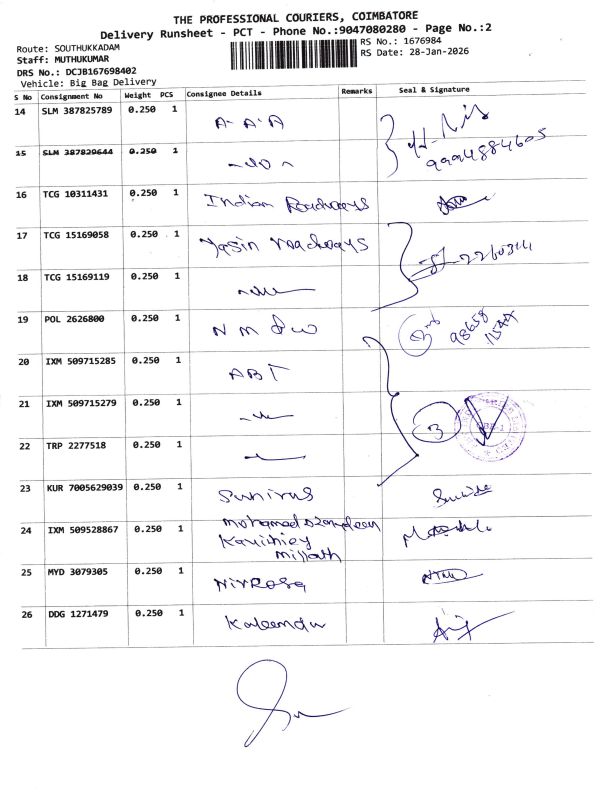 THE PROFESSIONAL COURIERS, COIMBATORE
Delivery Runsheet - PCT - Phone No.:9047080280 - Page No.:2
Route: SOUTHUKKADAM
RS No.: 1676984
Staff: MUTHUKUMAR
RS Date: 28-Jan-2026
DRS No.: DCJB167698402
Vehicle: Big Bag Delivery
S No Consignment No Weight PCS Consignee Details Remarks Seal & Signature
14 SLM 387825789 0.250 1 A-A-A
9994884605
15 SLM 387829644 0.250 1 -do-
16 TCG 10311431 0.250 1 Indian Roadways
17 TCG 15169058 0.250 1 Yasin roadways
18 TCG 15169119 0.250 1
19 POL 2626800 0.250 1 N M
20 IXM 509715285 0.250 1 ABT
21 IXM 509715279 0.250 1
3
22 TRP 2277518 0.250 1
23 KUR 7005629039 0.250 1
24 IXM 509528867 0.250 1 mohamed
25 MYD 3079305 0.250 1 Nivrosa
26 DDG 1271479 0.250 1